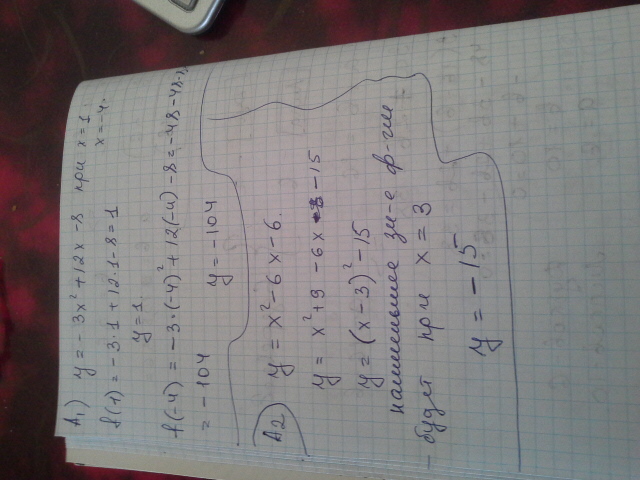 A1) y = -3x² + 12x - 8 при x = 1;
x = -4.
f(1) = -3·1 + 12·1 - 8 = 1
y = 1
f(-4) = -3·(-4)² + 12(-4) - 8 = -48 - 48 - 8
= -104 y = -104
A2) y = x² - 6x - 6.
y = x² + 9 - 6x - 15
y = (x - 3)² - 15
наименьшее зн-е ф-ции
- будет при x = 3
y = -15